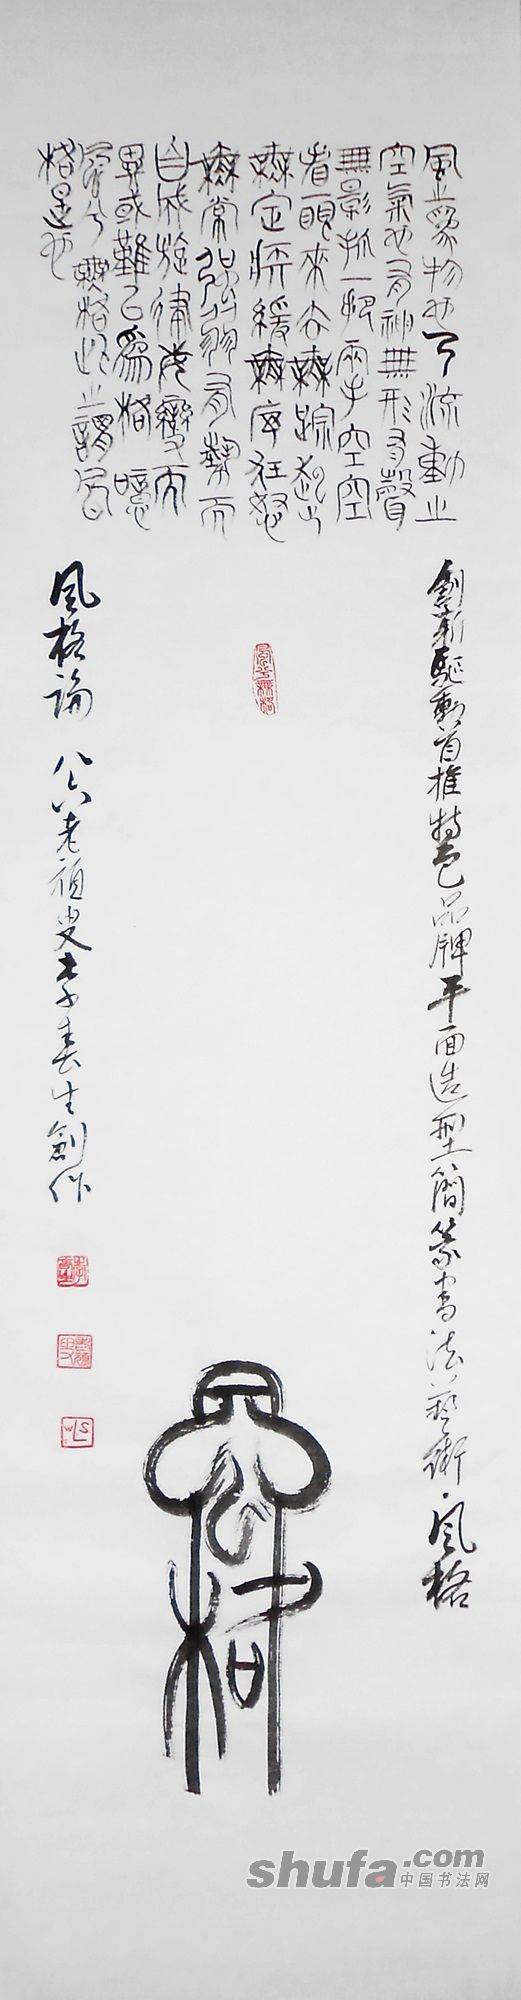 風之爲物也乃流動之
空氣也有神無形有聲
無影抓一把兩手空空
看眼來去無踪起止
無定時緩無序狂怒
無常強弱有勢而
自成旋律及變而
異或難己爲格噫
風兮無格此之謂風
格是也
創新驅動首推特色品牌平面造型簡篆書法藝術·風格
風格論 八六老頑叟李春生創作
風格
shufa.com
中国书法网